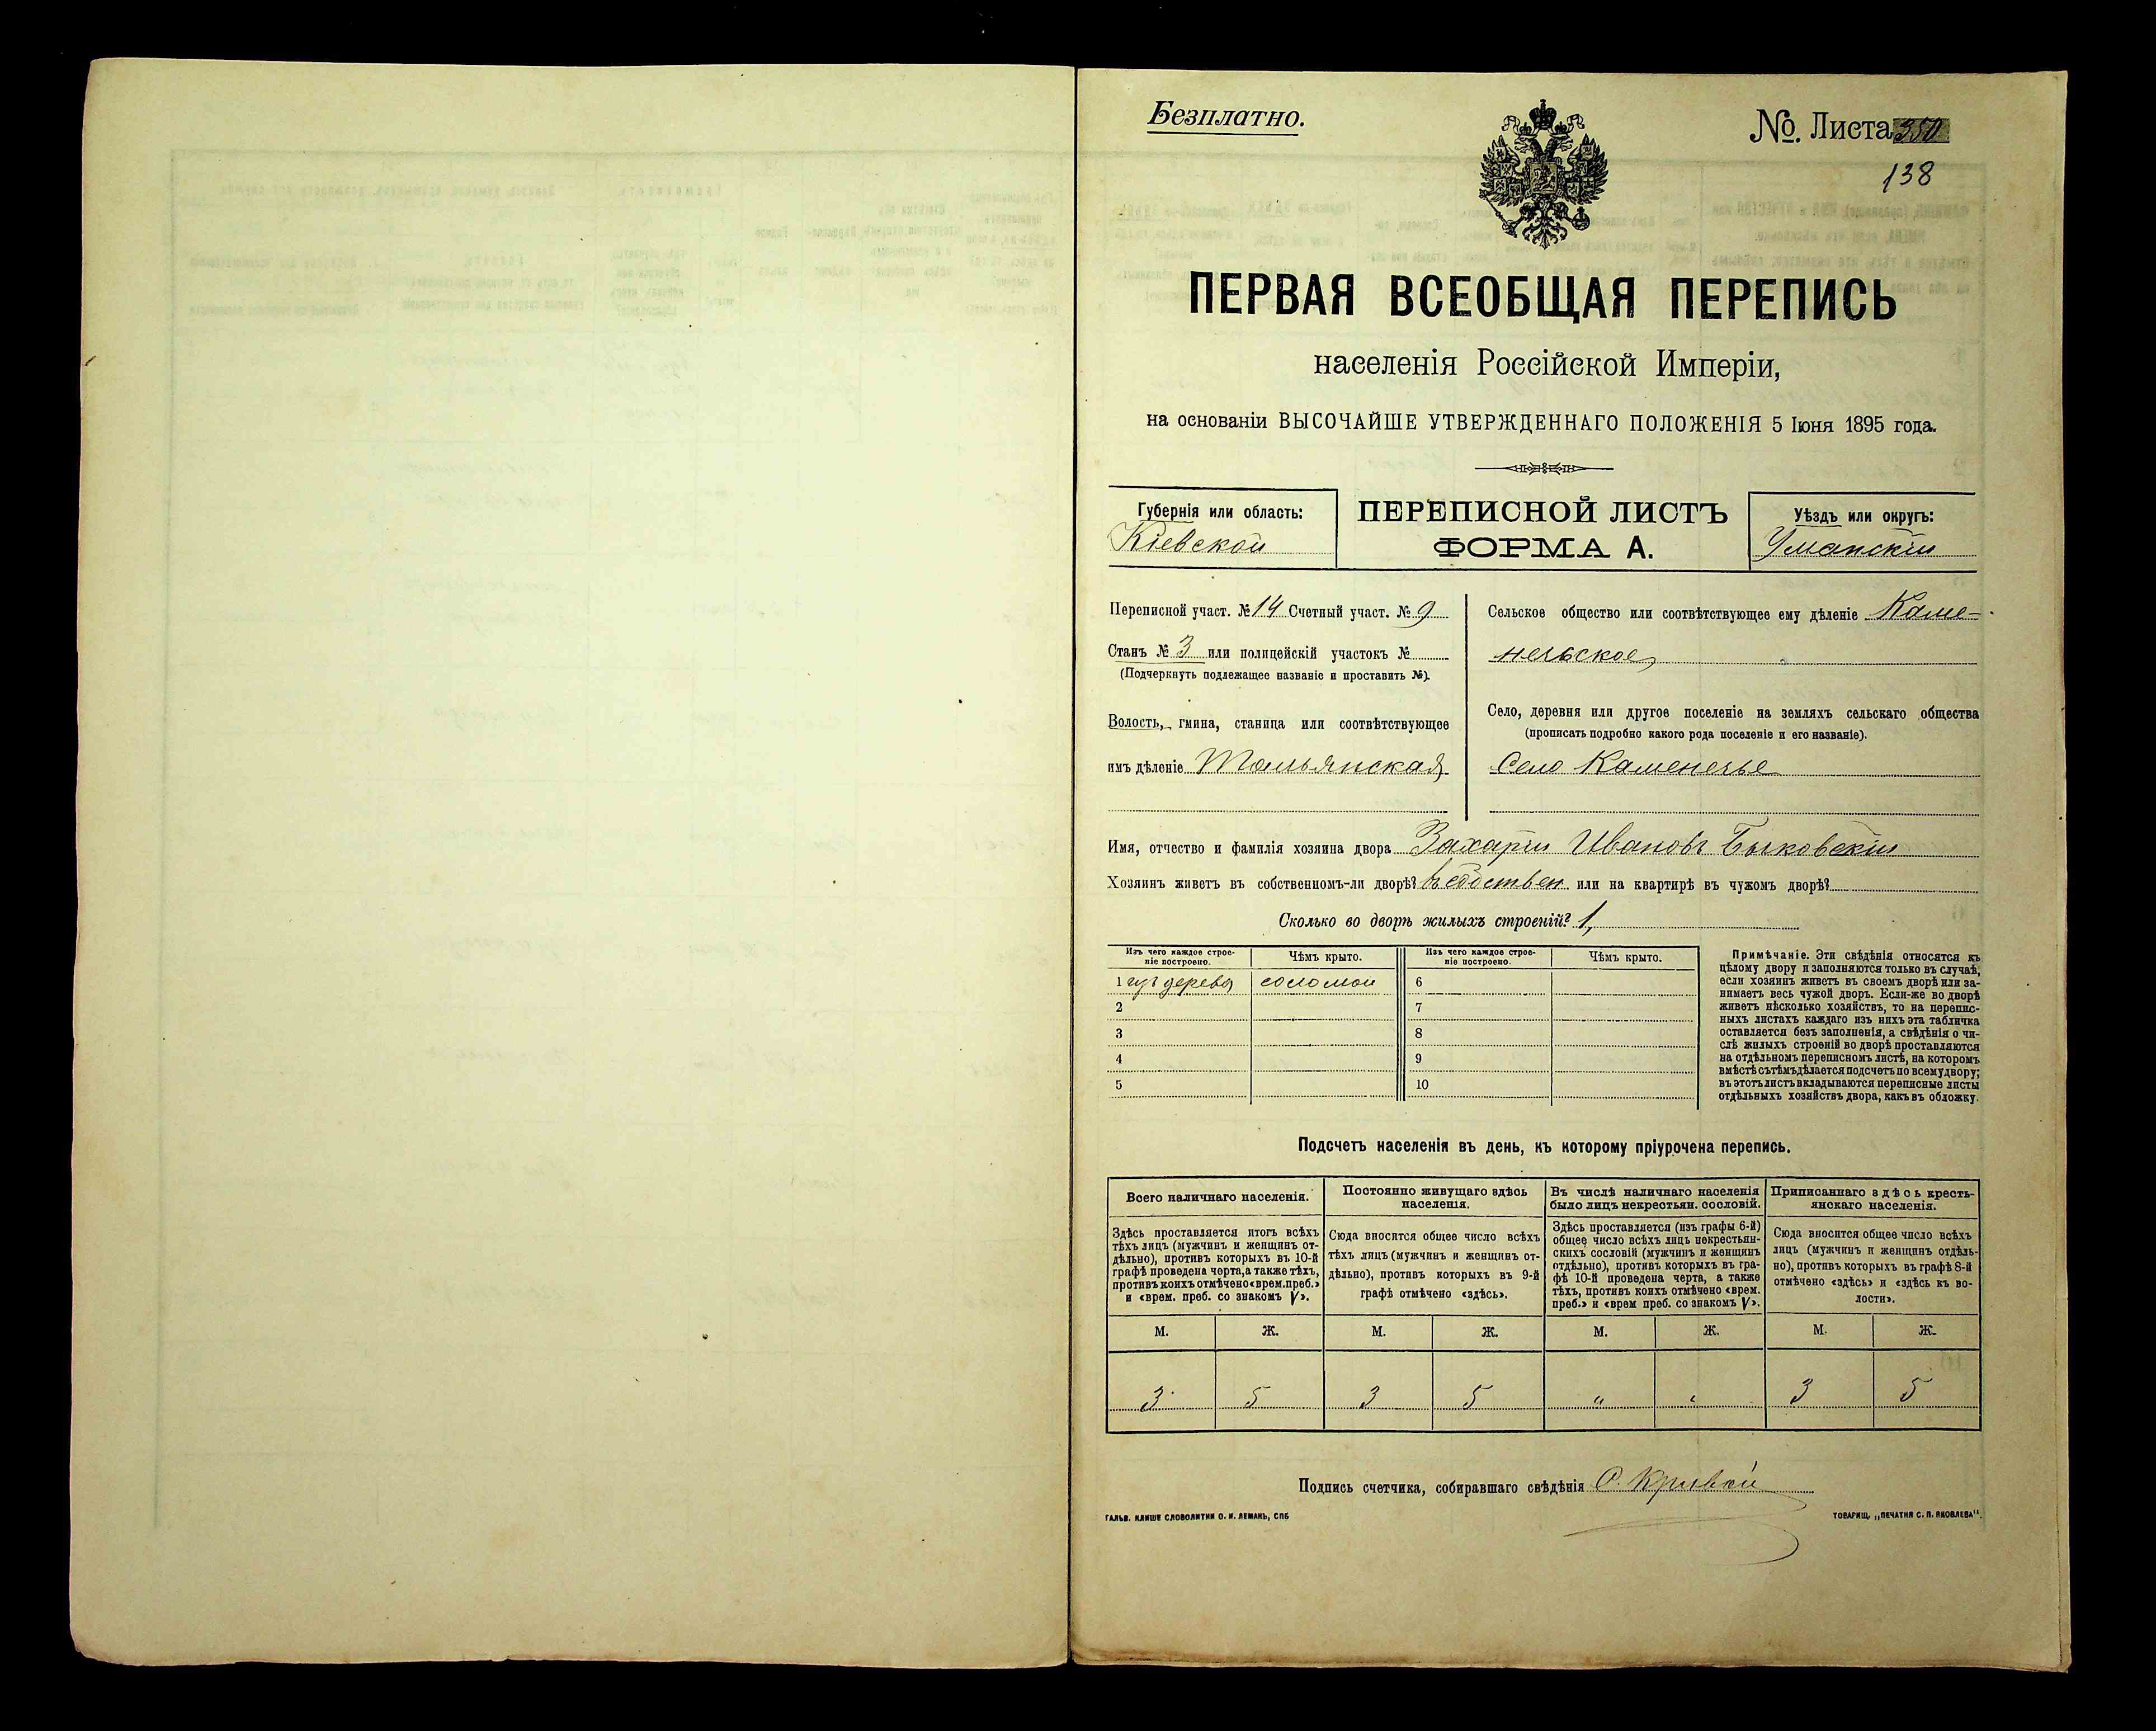 Безплатно.
№. Листа 350
138
ПЕРВАЯ ВСЕОБЩАЯ ПЕРЕПИСЬ
населенія Россійской Имперіи,
на основаніи ВЫСОЧАЙШЕ УТВЕРЖДЕННАГО ПОЛОЖЕНІЯ 5 Іюня 1895 года.
Губернія или область:
Кіевской
ПЕРЕПИСНОЙ ЛИСТЪ
ФОРМА А.
Уѣздъ или округъ:
Уманскій
Переписной участ. № 14 Счетный участ. № 9
Станъ № 3 или полицейскій участокъ №
(Подчеркнуть подлежащее названіе и проставить №).
Волость, гмина, станица или соотвѣтствующее
имъ дѣленіе Тальянская
Сельское общество или соотвѣтствующее ему дѣленіе Каме-
нечьское
Село, деревня или другое поселеніе на земляхъ сельскаго общества
(прописать подробно какого рода поселеніе и его названіе).
Село Каменечье
Имя, отчество и фамилія хозяина двора Захарій Ивановъ Быковскій
Хозяинъ живетъ въ собственномъ-ли дворѣ? въ собствен. или на квартирѣ въ чужомъ дворѣ?
Сколько во дворѣ жилыхъ строеній? 1,
Изъ чего каждое строе-
ніе построено.
Чѣмъ крыто.
Изъ чего каждое строе-
ніе построено.
Чѣмъ крыто.
1 изъ дерева соломой 6
2 7
3 8
4 9
5 10
Примѣчаніе. Эти свѣдѣнія относятся къ
цѣлому двору и заполняются только въ случаѣ,
если хозяинъ живетъ въ своемъ дворѣ или за-
нимаетъ весь чужой дворъ. Если-же во дворѣ
живетъ нѣсколько хозяйствъ, то на перепис-
ныхъ листахъ каждаго изъ нихъ эта табличка
оставляется безъ заполненія, а свѣдѣнія о чи-
слѣ жилыхъ строеній во дворѣ проставляются
на отдѣльномъ переписномъ листѣ, на которомъ
вмѣстѣ съ тѣмъ дѣлается подсчетъ по всему двору;
въ этотъ листъ вкладываются переписные листы
отдѣльныхъ хозяйствъ двора, какъ въ обложку.
Подсчетъ населенія въ день, къ которому пріурочена перепись.
Всего наличнаго населенія.
Здѣсь проставляется итогъ всѣхъ
тѣхъ лицъ (мужчинъ и женщинъ от-
дѣльно), противъ которыхъ въ 10-й
графѣ проведена черта, а также тѣхъ,
противъ коихъ отмѣчено «врем. преб.»
и «врем. преб. со знакомъ V».
Постоянно живущаго здѣсь
населенія.
Сюда вносится общее число всѣхъ
тѣхъ лицъ (мужчинъ и женщинъ от-
дѣльно), противъ которыхъ въ 9-й
графѣ отмѣчено «здѣсь».
Въ числѣ наличнаго населенія
было лицъ некрестьян. сословій.
Здѣсь проставляется (изъ графы 6-й)
общее число всѣхъ лицъ некрестьян-
скихъ сословій (мужчинъ и женщинъ
отдѣльно), противъ которыхъ въ гра-
фѣ 10-й проведена черта, а также
тѣхъ, противъ коихъ отмѣчено «врем.
преб.» и «врем преб. со знакомъ V».
Приписаннаго здѣсь кресть-
янскаго населенія.
Сюда вносится общее число всѣхъ
лицъ (мужчинъ и женщинъ отдѣль-
но), противъ которыхъ въ графѣ 8-й
отмѣчено «здѣсь» и «здѣсь къ во-
лости».
М. Ж. М. Ж. М. Ж. М. Ж.
3 5 3 5 " " 3 5
Подпись счетчика, собиравшаго свѣдѣнія С. Кривой
ГАЛЬВ. КЛИШЕ СЛОВОЛИТНИ О. И. ЛЕМАНЪ, СПБ
ТОВАРИЩ. „ПЕЧАТНЯ С. П. ЯКОВЛЕВА".